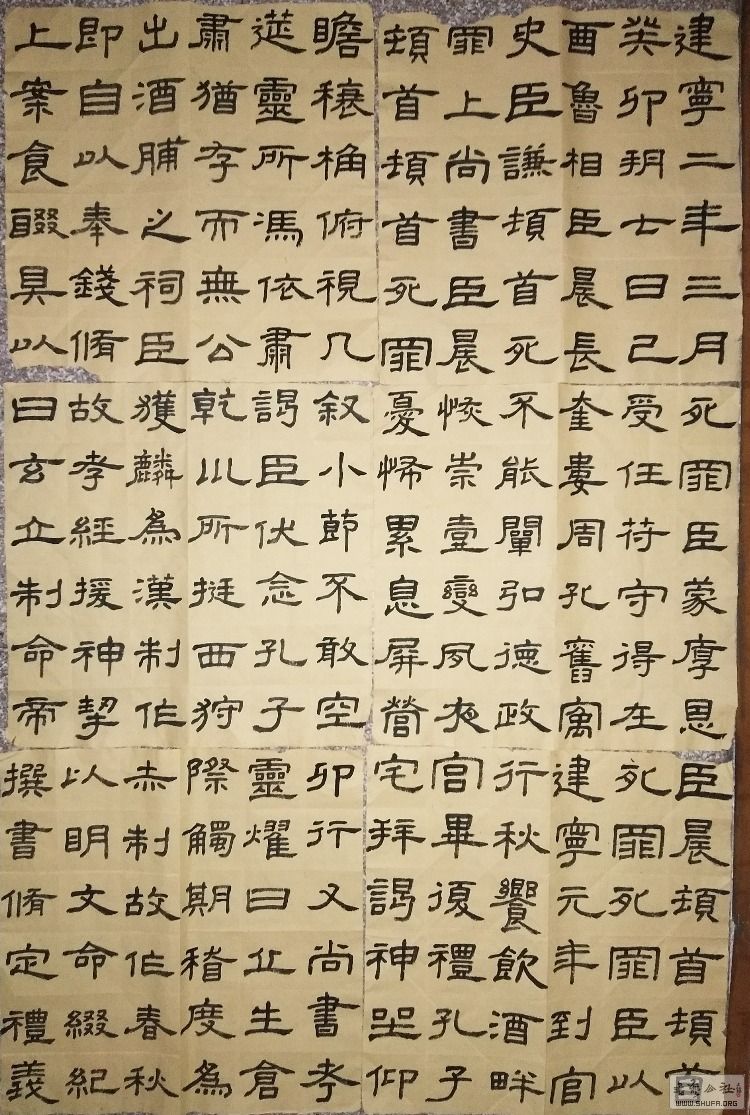 建寧二年三月
癸卯朔七日己
酉魯相臣晨長
史臣謙頓首死
罪上尚書臣晨
頓首頓首死罪
死罪臣蒙厚恩
受任符守得在
奎婁周孔舊寓
不能闡弘德政
恢崇壹變夙夜
憂怖累息屏營
臣晨頓首頓首
死罪死罪臣以
建寧元年到官
行秋饗飲酒畔
宮畢復禮孔子
宅拜謁神坐仰
瞻榱桷俯視几
筵靈所馮依肅
肅猶存而無公
出酒脯之祠臣
即自以奉錢脩
上案食醊具以
叙小節不敢空
謁臣伏念孔子
乾㠯所挺西狩
獲麟為漢制作
故孝經援神挈
曰玄丘制命帝
卯行又尚書考
靈燿曰丘生倉
際觸期稽度為
赤制故作春秋
以明文命綴紀
撰書脩定禮義
公社
WWW.SHUFA.ORG